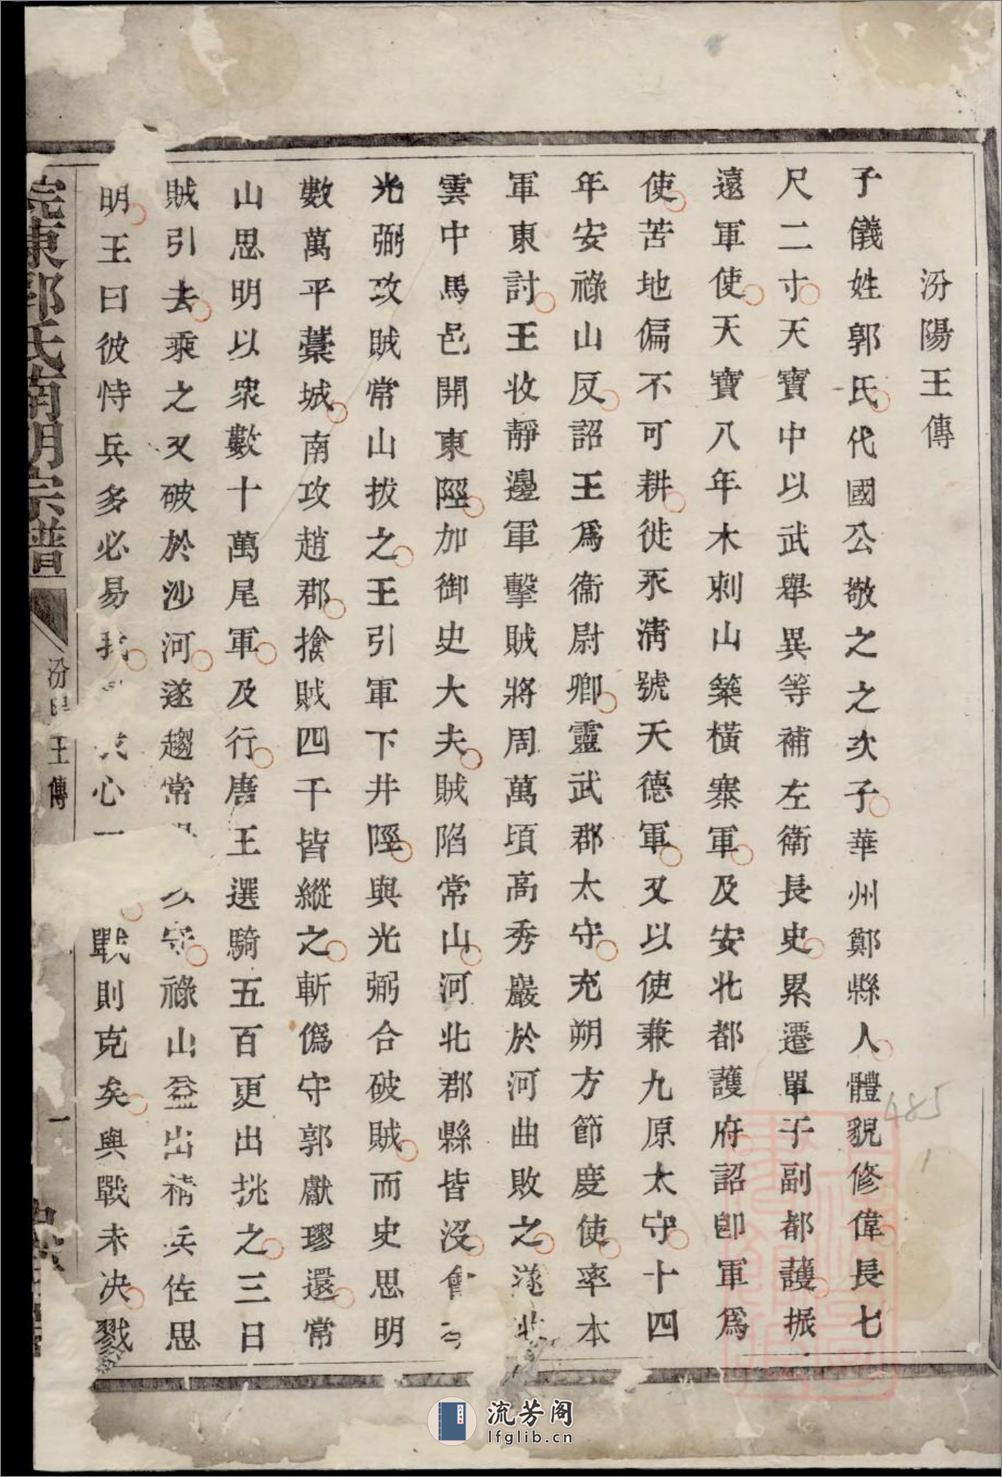 汾陽王傳
子儀姓郭氏代國公敬之之次子華州鄭縣人體貌修偉長七
尺二寸天寶中以武舉異等補左衛長史累遷單于副都護振
遠軍使天寶八年木剌山築橫寨軍及安北都護府詔卽軍爲
使苦地偏不可耕徙永淸號天德軍又以使兼九原太守十四
年安祿山反詔王爲衞尉卿靈武郡太守充朔方節慶使率本
軍東討王收靜邊軍擊賊將周萬頃高秀巖於河曲敗之遂北
雲中馬邑開東陘加御史大夫賊陷常山河北郡縣皆沒會
光弼攻賊常山拔之王引軍下井陘與光弼合破賊而史思明
數萬平藁城南攻趙郡擒賊四千皆縱之斬僞守郭獻璆還常
山思明以衆數十萬尾軍及行唐王選騎五百更出挑之三日
賊引去乘之又破於沙河遂趨常以守祿山益出精兵佐思
明王曰彼恃兵多必易我心戰則克矣與戰未决戮
皖東郭氏南明宗譜
汾陽王傳
一
485
1
流芳阁
lfglib.cn